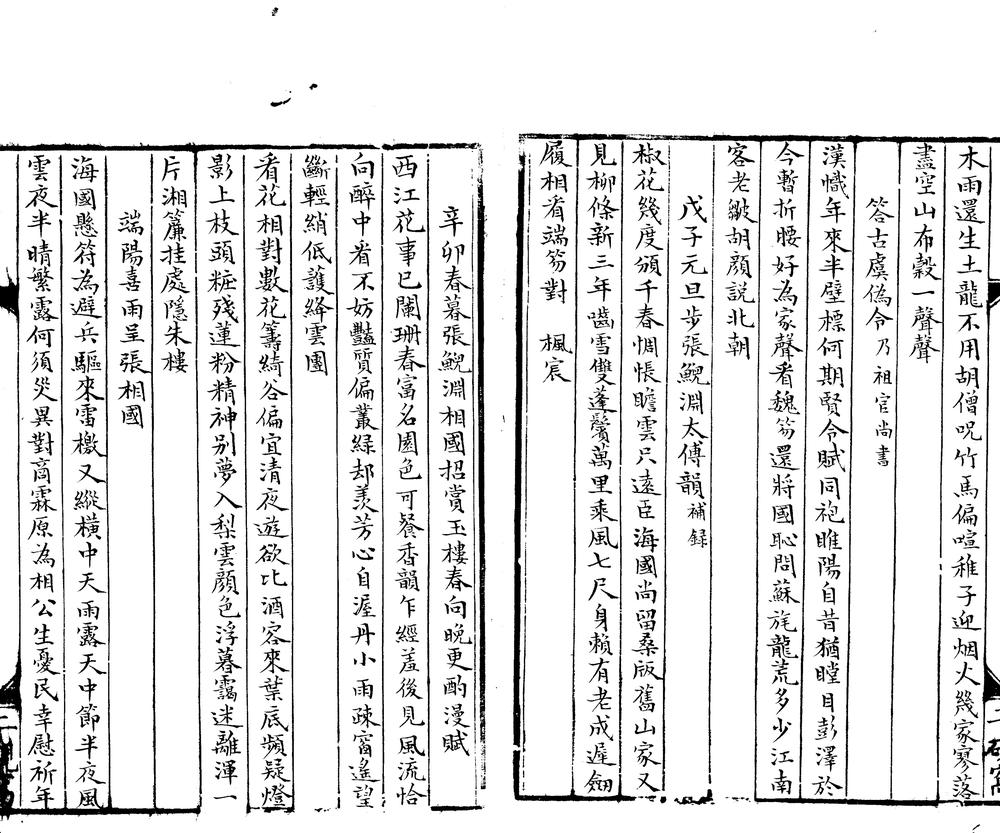 木雨還生土龍不用胡僧呪竹馬偏喧稚子迎烟火幾家寥落
盡空山布穀一聲聲
答古虞偽令乃祖官尚書
漢幟年來半壁標何期賢令賦同袍睢陽自昔猶瞠目彭澤於
今暫折腰好為家聲看魏笏還將國恥問蘇旄龍荒多少江南
客老皺胡顏説北朝
戊子元旦步張鯢淵太傅韻補録
椒花幾度頒千春惆悵瞻雲只遠臣海國尚留桑版舊山家又
見柳條新三年嚙雪雙蓬鬢萬里乘風七尺身賴有老成遲劒
履相看端笏對 楓宸
辛卯春暮張鯢淵相國招賞玉樓春向晚更酌漫賦
西江花事已闌珊春富名園色可餐香韻乍經羞後見風流恰
向醉中看不妨豔質偏叢綠却羨芳心自渥丹小雨疎窗遙望
斷輕綃低護絳雲團
看花相對數花籌綺谷偏宜清夜遊欲比酒容來葉底頻疑燈
影上枝頭粧殘蓮粉精神别夢入梨雲顏色浮暮靄迷離渾一
片湘簾挂處隱朱樓
端陽喜雨呈張相國
海國懸符為避兵驅來雷檄又縱橫中天雨露天中節半夜風
雲夜半晴繁露何須災異對商霖原為相公生憂民幸慰祈年